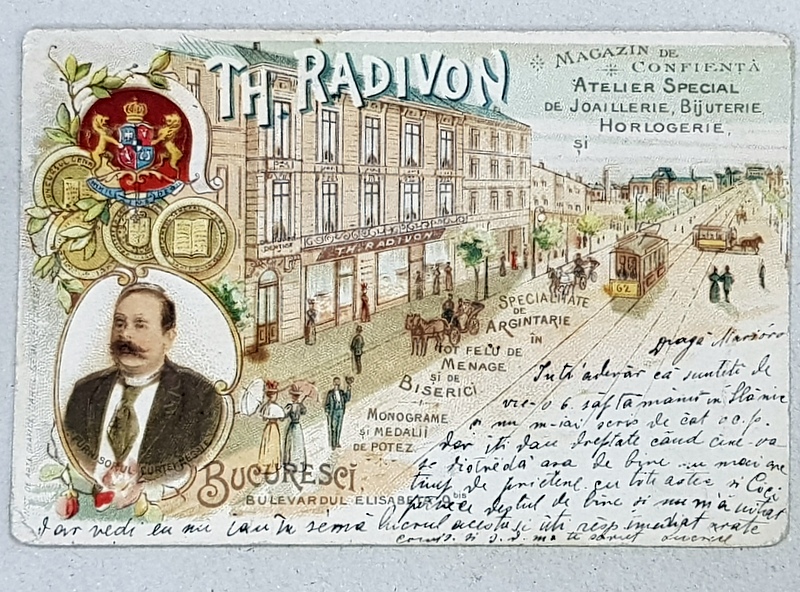 TH. RADIVON
MAGAZIN DE
CONFIENȚĂ
ATELIER SPECIAL
DE JOAILLERIE, BIJUTERIE,
HORLOGERIE,
ȘI
TH. RADIVON
62
SPECIALITATE
DE
ARGINTARIE
ÎN
TOT FELU DE
MENAGE
ȘI DE
BISERICI
MONOGRAME
ȘI MEDALII
DE BOTEZ
FURNISORUL CURTEI REGALE
BUCURESCI,
BULEVARDUL ELISABETA 9 bis
Dragă Marioro
Intr'adevăr că sunteti de
vre-o 6 săptămâni în Slănic
și nu m-ai scris de cât o c.p.
dar iti dau dreptate când cine-va
se distrează așa de bine nu mai are
timp de prieteni cu tote astea si
destul de bine si nu m'a uitat
dar vedi eu nu iau în semă lucrul acesta și iti resp imediat
te sarut